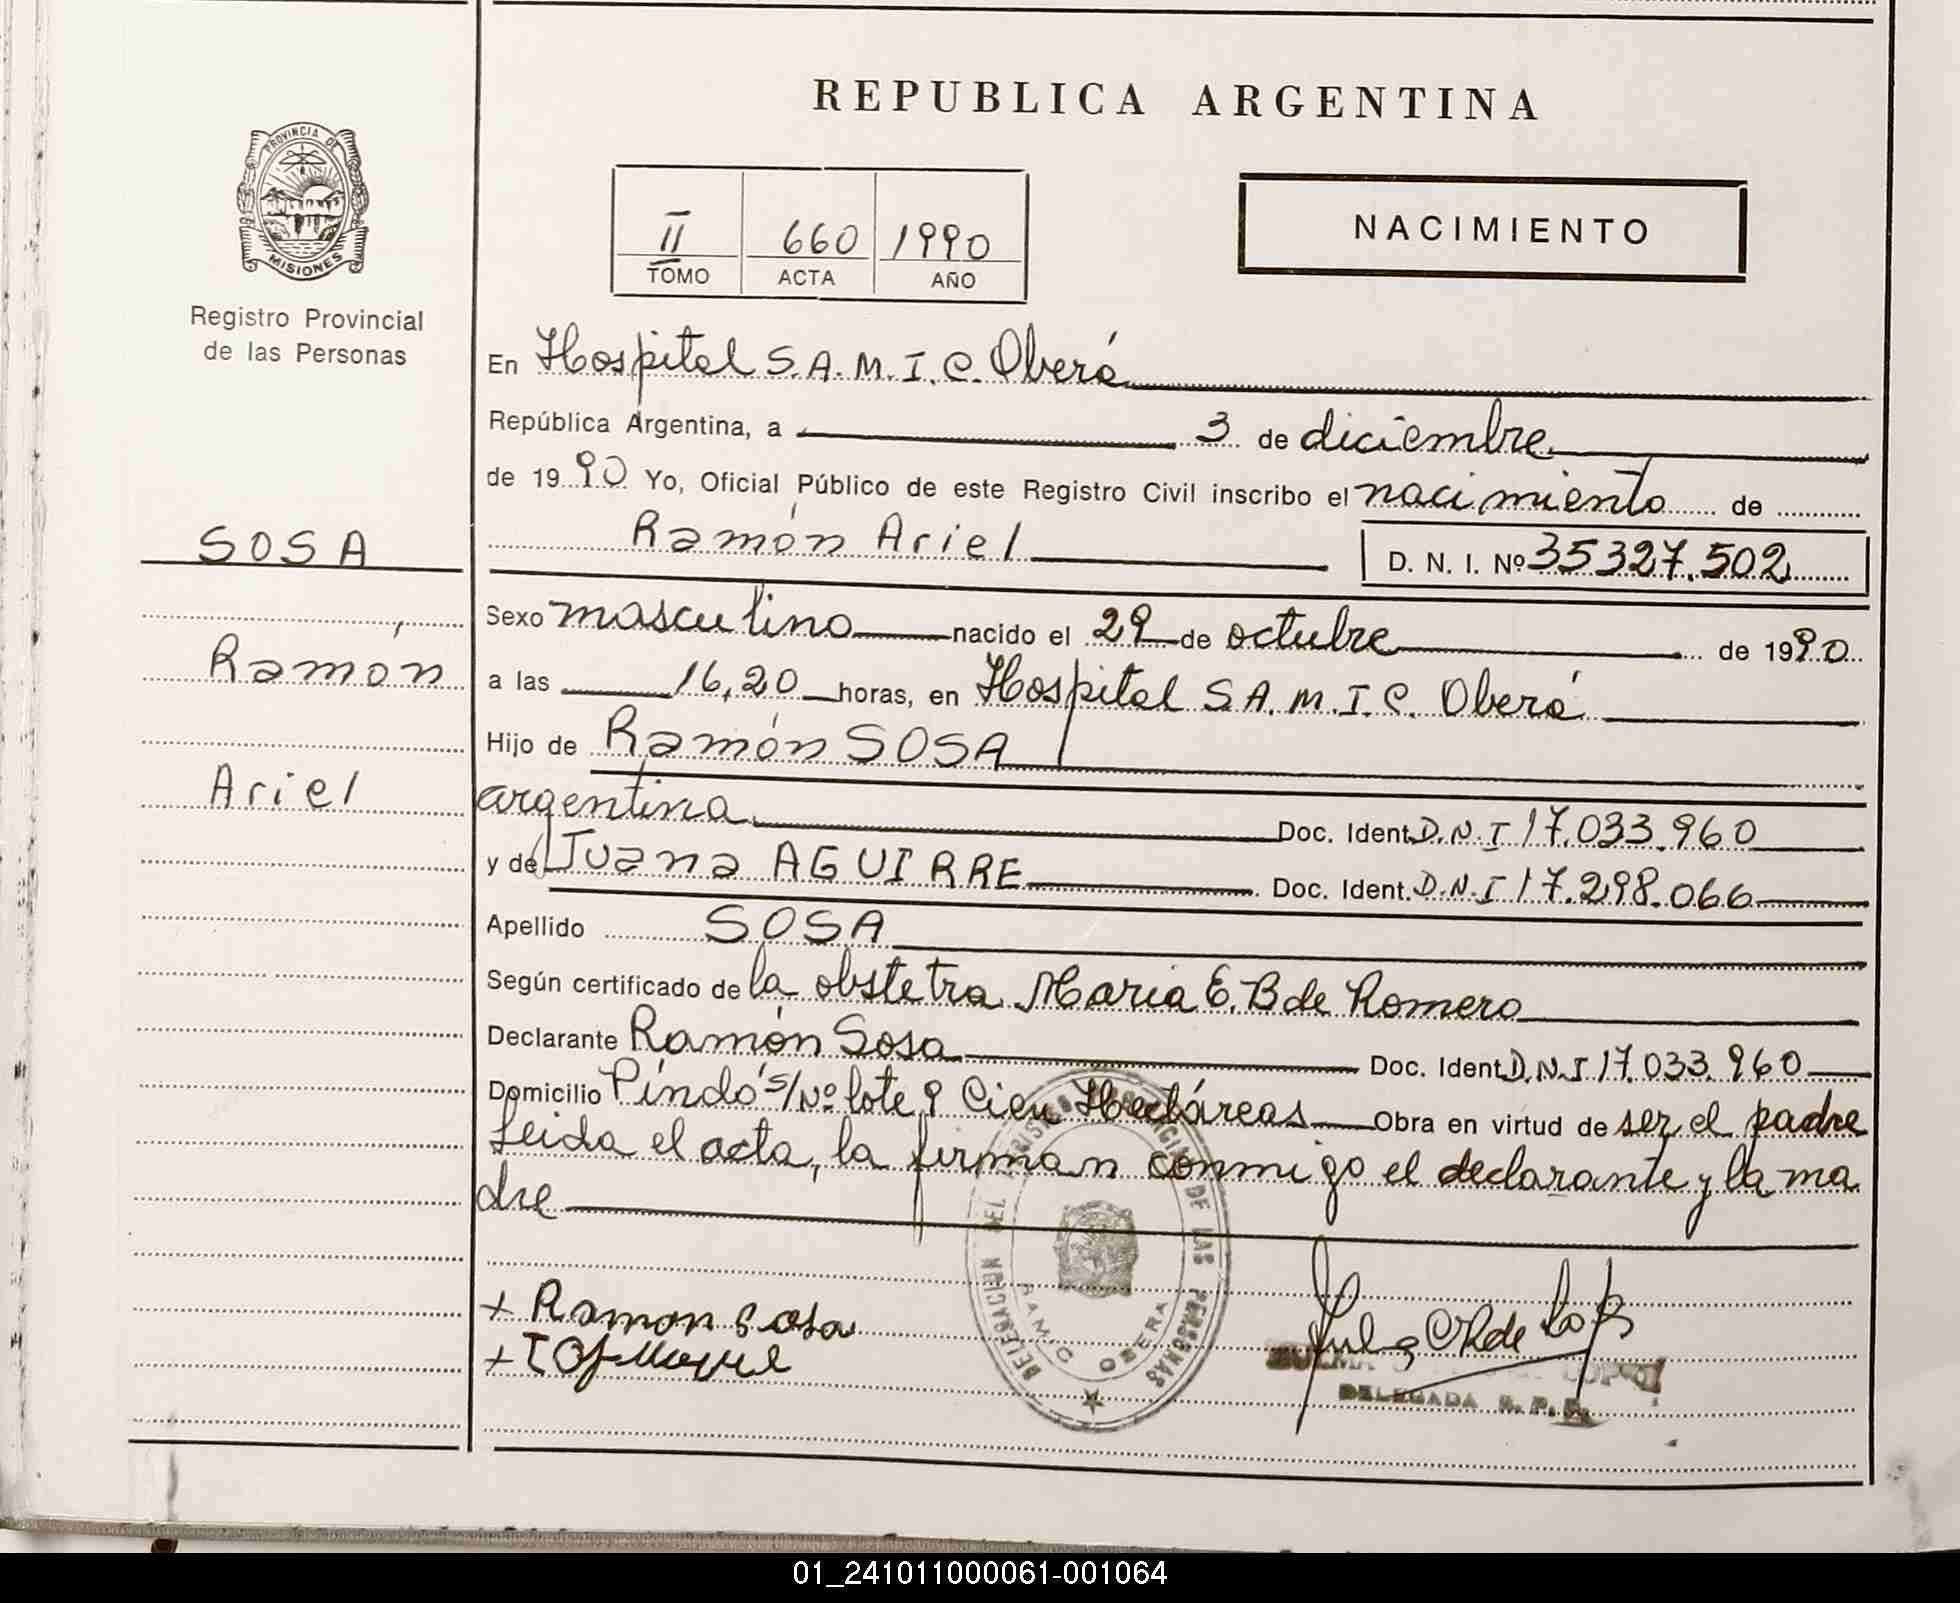 REPUBLICA ARGENTINA
PROVINCIA DE
MISIONES
Registro Provincial
de las Personas
II 660 1990
TOMO ACTA AÑO
NACIMIENTO
En Hospital S.A.M.I.C. Oberá
República Argentina, a 3 de diciembre
de 1990 Yo, Oficial Público de este Registro Civil inscribo el nacimiento de
Ramón Ariel D. N. I. Nº 35327.502
SOSA
Ramón
Ariel
Sexo masculino nacido el 29 de octubre de 1990
a las 16,20 horas, en Hospital S.A.M.I.C. Oberá
Hijo de Ramón SOSA
argentina Doc. Ident. D.N.I 17.033.960
y de Juana AGUIRRE Doc. Ident. D.N.I 17.298.066
Apellido SOSA
Según certificado de la obstetra Maria E. B de Romero
Declarante Ramón Sosa Doc. Ident D.N.I 17.033.960
Domicilio Pindó s/Nº lote 9 Cien Hectáreas Obra en virtud de ser el padre
Leida el acta, la firman conmigo el declarante y la ma
dre
+ Ramon Sosa
DELEGACION DEL REGISTRO PROVINCIAL DE LAS PERSONAS
RAMIC OBERA
DELEGADA R. P. P.
01_241011000061-001064